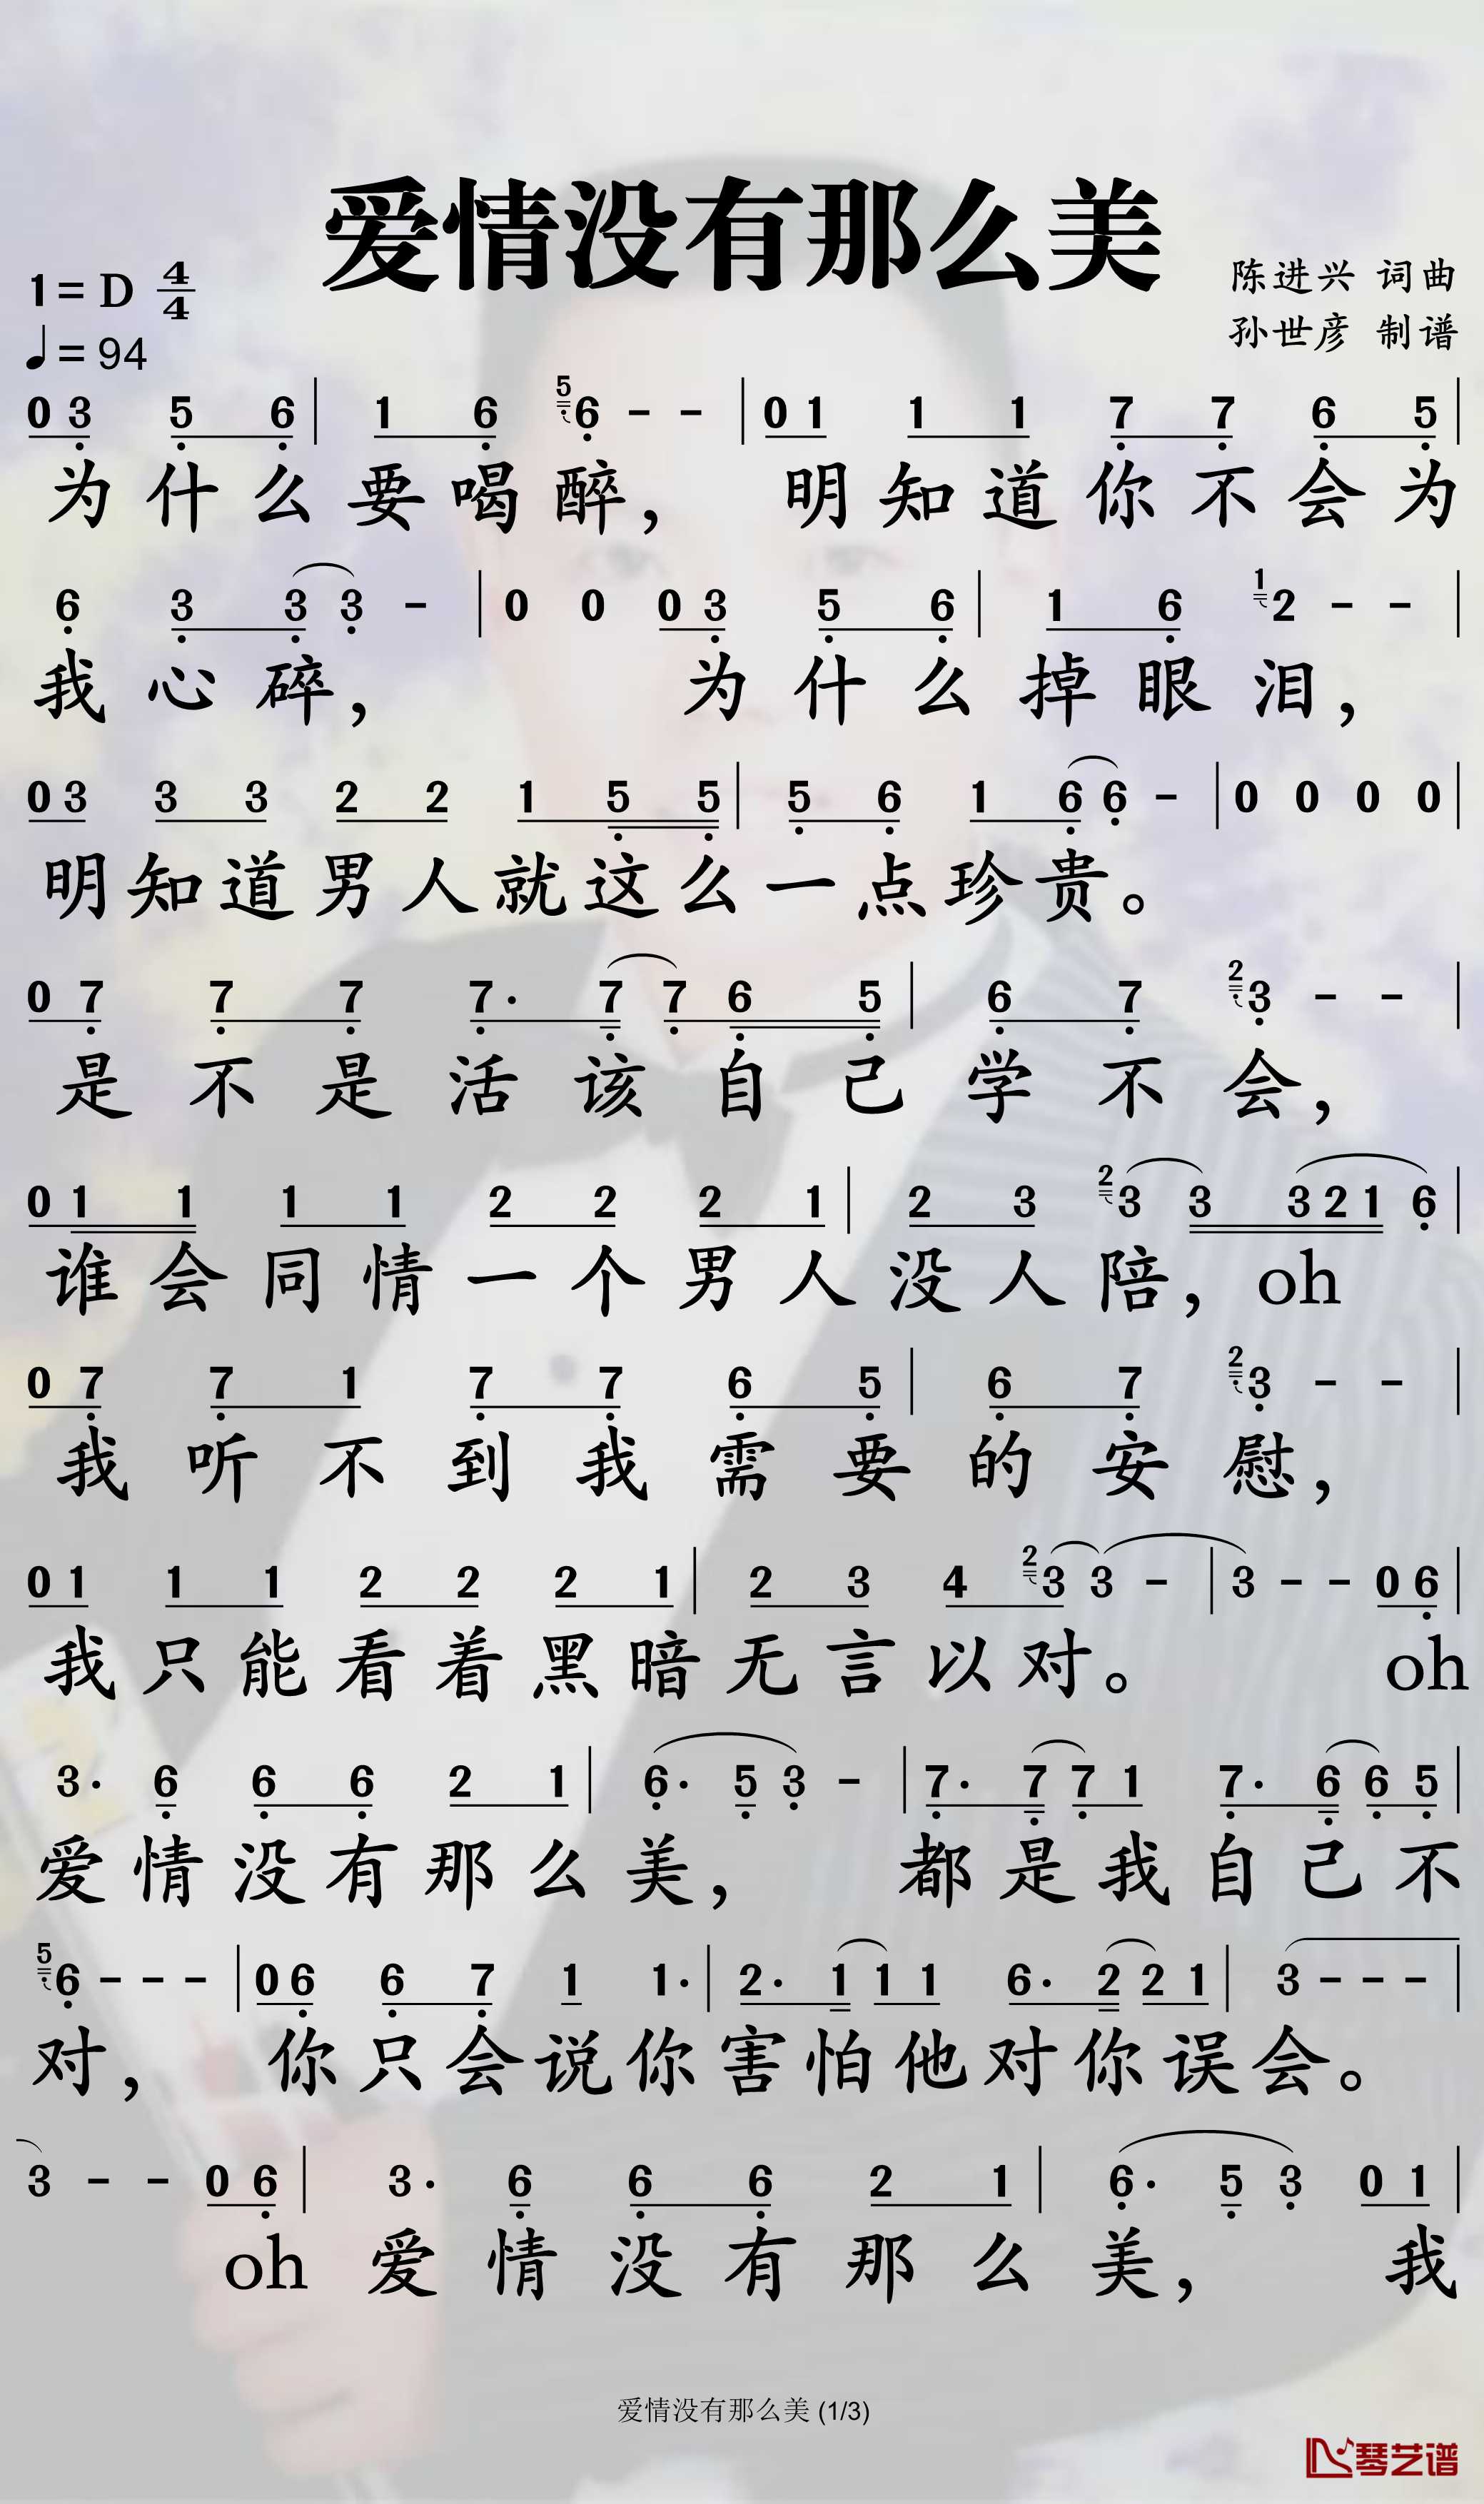 爱情没有那么美
1=D 4/4
陈进兴 词曲
♩=94
孙世彦 制谱
0 3 5 6 | 1 6 5 6 - - | 0 1 1 1 7 7 6 5 |
为什么要喝醉，明知道你不会为
6 3 3 3 - | 0 0 0 3 5 6 | 1 6 1 2 - - |
我心碎，为什么掉眼泪，
0 3 3 3 2 2 1 5 5 | 5 6 1 6 6 - | 0 0 0 0 |
明知道男人就这么一点珍贵。
0 7 7 7 7· 7 7 6 5 | 6 7 2 3 - - |
是不是活该自己学不会，
0 1 1 1 1 2 2 2 1 | 2 3 2 3 3 3 2 1 6 |
谁会同情一个男人没人陪，oh
0 7 7 1 7 7 6 5 | 6 7 2 3 - - |
我听不到我需要的安慰，
0 1 1 1 2 2 2 1 | 2 3 4 2 3 3 - | 3 - - 0 6 |
我只能看着黑暗无言以对。oh
3· 6 6 6 2 1 | 6· 5 3 - | 7· 7 7 1 7· 6 6 5 |
爱情没有那么美，都是我自己不
5 6 - - - | 0 6 6 7 1 1· | 2· 1 1 1 6· 2 2 1 | 3 - - - |
对，你只会说你害怕他对你误会。
3 - - 0 6 | 3· 6 6 6 2 1 | 6· 5 3 0 1 |
oh 爱情没有那么美，我
爱情没有那么美 (1/3)
琴艺谱